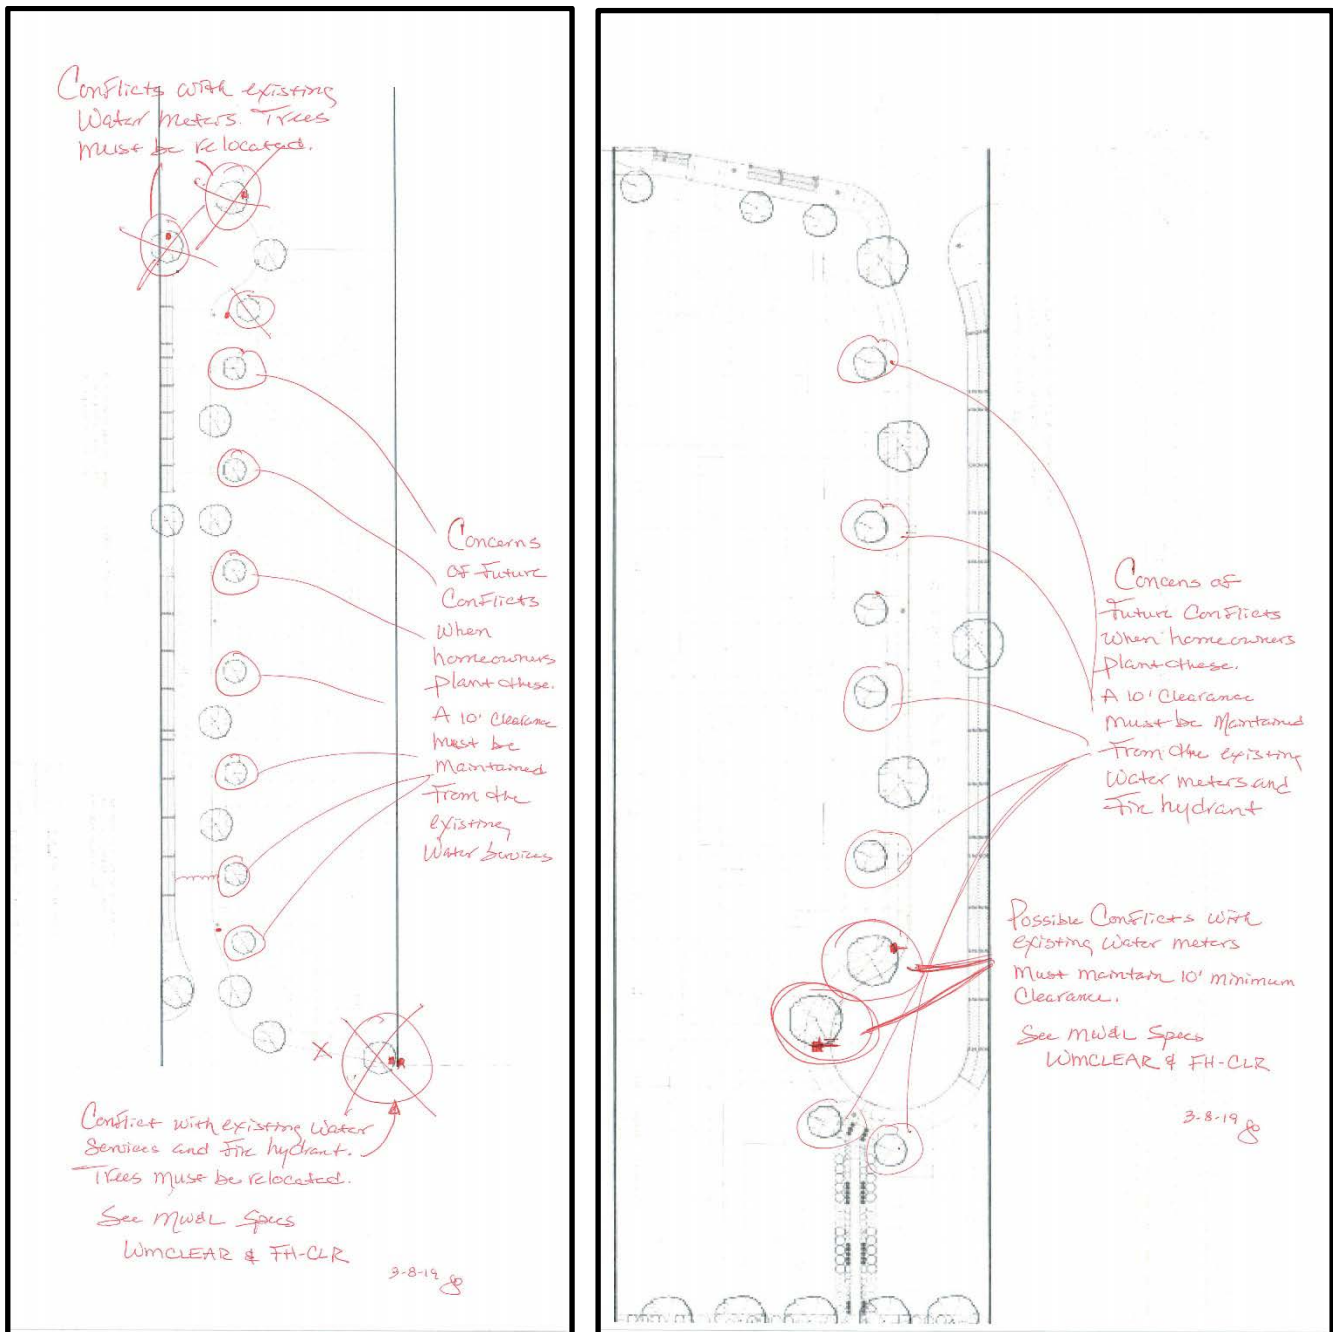 Conflicts with existing
Water meters. Trees
must be relocated.
Concerns
of Future
Conflicts
When
homeowners
plant these.
A 10' Clearance
Must be
Maintained
From the
existing
Water Services
Conflict with existing Water
Services and Fire hydrant.
Trees must be relocated.
See MW&L Specs
WMCLEAR & FH-CLR
3-8-19
Concens of
Future Conflicts
When homeowners
plant these.
A 10' Clearance
Must be Maintained
From the existing
Water meters and
Fire hydrant
Possible Conflicts with
existing Water meters
Must maintain 10' minimum
Clearance.
See MW&L Specs
WMCLEAR & FH-CLR
3-8-19